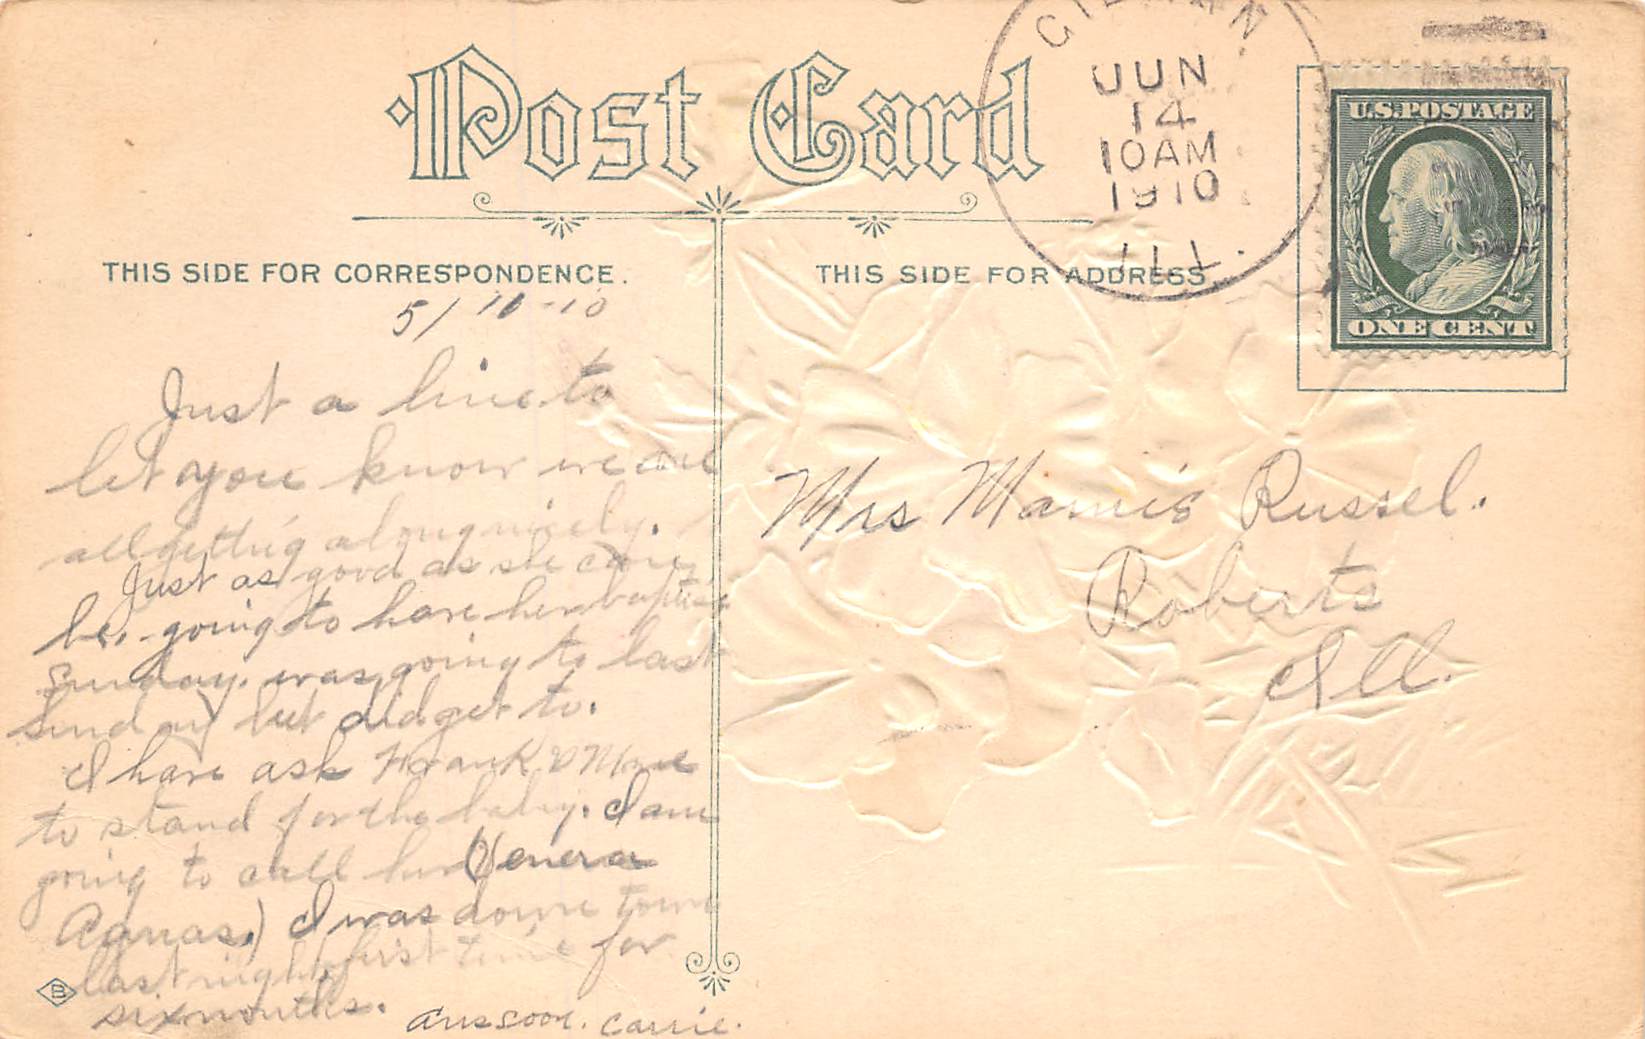 Post Card
GILMAN.
JUN
14
10AM
1910
ILL.
U.S. POSTAGE
ONE CENT
THIS SIDE FOR CORRESPONDENCE.
THIS SIDE FOR ADDRESS.
Just a line to
let you know we are
all getting along nicely.
Just as good as she can
be. going to have her baptise
Sunday. was going to last
Sunday but didget to.
I have ask Frank & 
to stand for the baby. I am
going to call her (Venera
Agnas.) I was down town
last night first time for
six months. Ans soon. Carrie.
Mrs Mamie Russel.
Roberts
Ill.
B